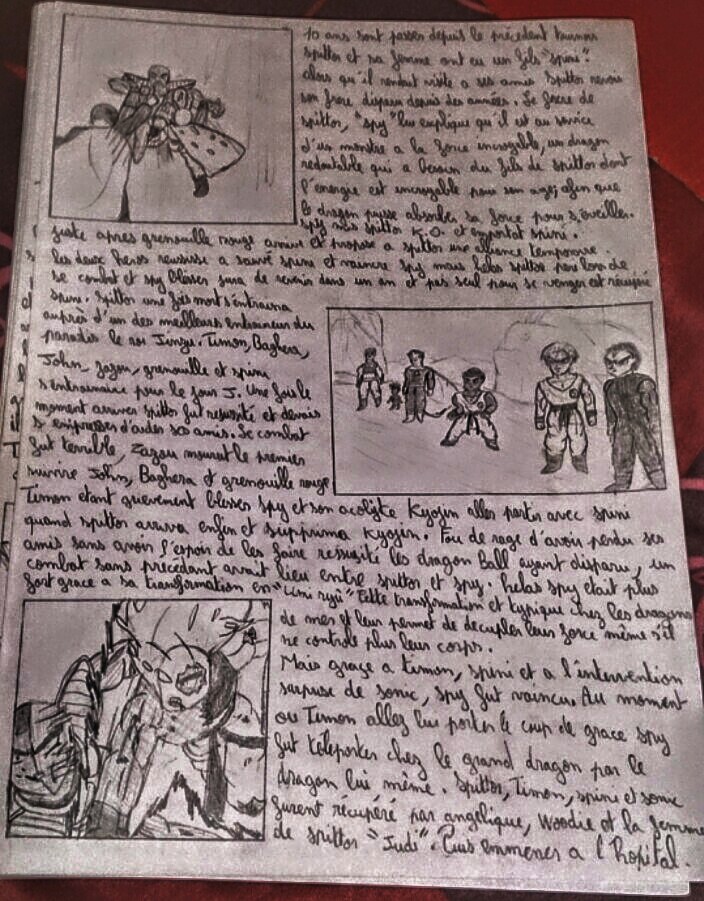 10 ans sont passer depuis le précedent tournois
spittor et sa femme ont eu un fils "spini".
alors qu'il rendait visite a ses amis spittor revois
son frere disparu depuis des années. Le frere de
spittor, "spy" lui explique qu'il est au service
d'un monstre a la force incroyable, un dragon
redoutable qui a besoin du fils de spittor dont
l'energie est incroyable pour son age, afin que
le dragon puisse absorber sa force pour s'éveiller.
spy mis spittor K.O. et emportat spini.
juste apres grenouille rouge arriva et propose a spittor une alliance temporaire.
les deux heros reussisse a sauvé spini et vaincre spy mais helas spittor peri lors de
se combat et spy blesser jura de revenir dans un an et pas seul pour se venger est récupéré
spini. spittor une fois mort s'entraina
auprès d'un des meilleurs entraineur du
paradis le roi Junzu. Timon, Baghera,
John, zazou, grenouille et spini
s'entrainaire pour le jour J. Une fois le
moment arriver spittor fut resusité et devais
s'empresser d'aider ses amis. Le combat
fut terrible, Zazou mourut le premier
suivire John, Baghera et grenouille rouge
Timon etant grievement blesser spy et son acolyte Kyojin alles partir avec spini
quand spittor arriva enfin et supprima Kyojin. Fou de rage d'avoir perdu ses
amis sans avoir l'espoir de les faire ressusité les dragon Ball ayant disparu, un
combat sans precedant avait lieu entre spittor et spy. helas spy etait plus
fort grace a sa transformation en "Umi ryū" Cette transformation et typique chez les dragons
de mers et leur permet de decupler leur force même s'il
ne controle plus leur corps.
Mais grace a timon, spini et a l'intervention
surpuse de sonic, spy fut vaincu. Au moment
ou Timon allez lui porter le coup de grace spy
fut téleporter chez le grand dragon par le
dragon lui même. Spittor, Timon, spini et sonic
furent récupéré par angelique, Woodie et la femme
de spittor "Judi". Puis emmener a l'hopital.